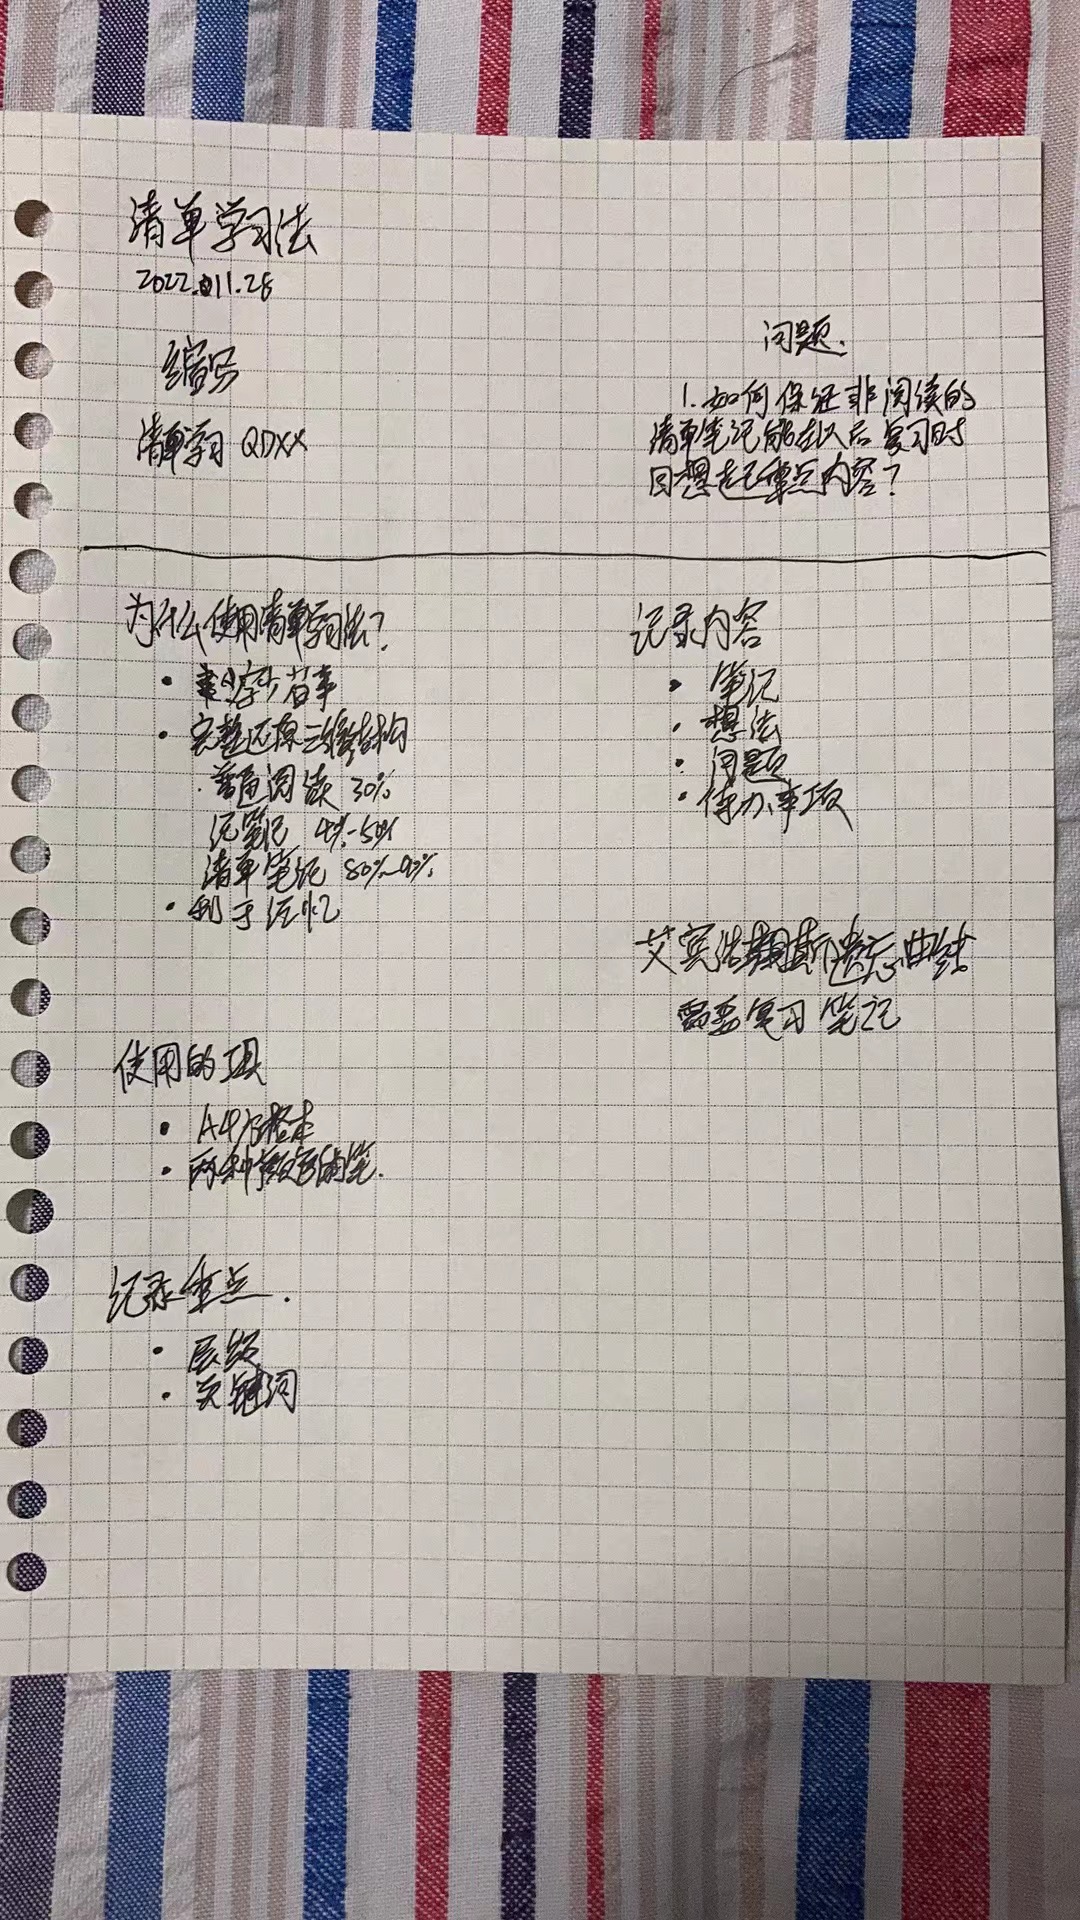 清单学习法
2022.011.28
编号
清单学习 QDXX
问题.
1.如何保证非阅读的
清单笔记能在以后复习时
回想起重点内容?
为什么使用清单学习法?
字少省事
完整还原三维结构
普通阅读 30%
记笔记 4%-50%
清单笔记 80%~90%
利于记忆
使用的工具
A4方格本
两种颜色的笔.
记录重点.
层级
关键词
记录内容
笔记
想法
问题
待办事项
艾宾浩斯遗忘曲线
需要复习笔记